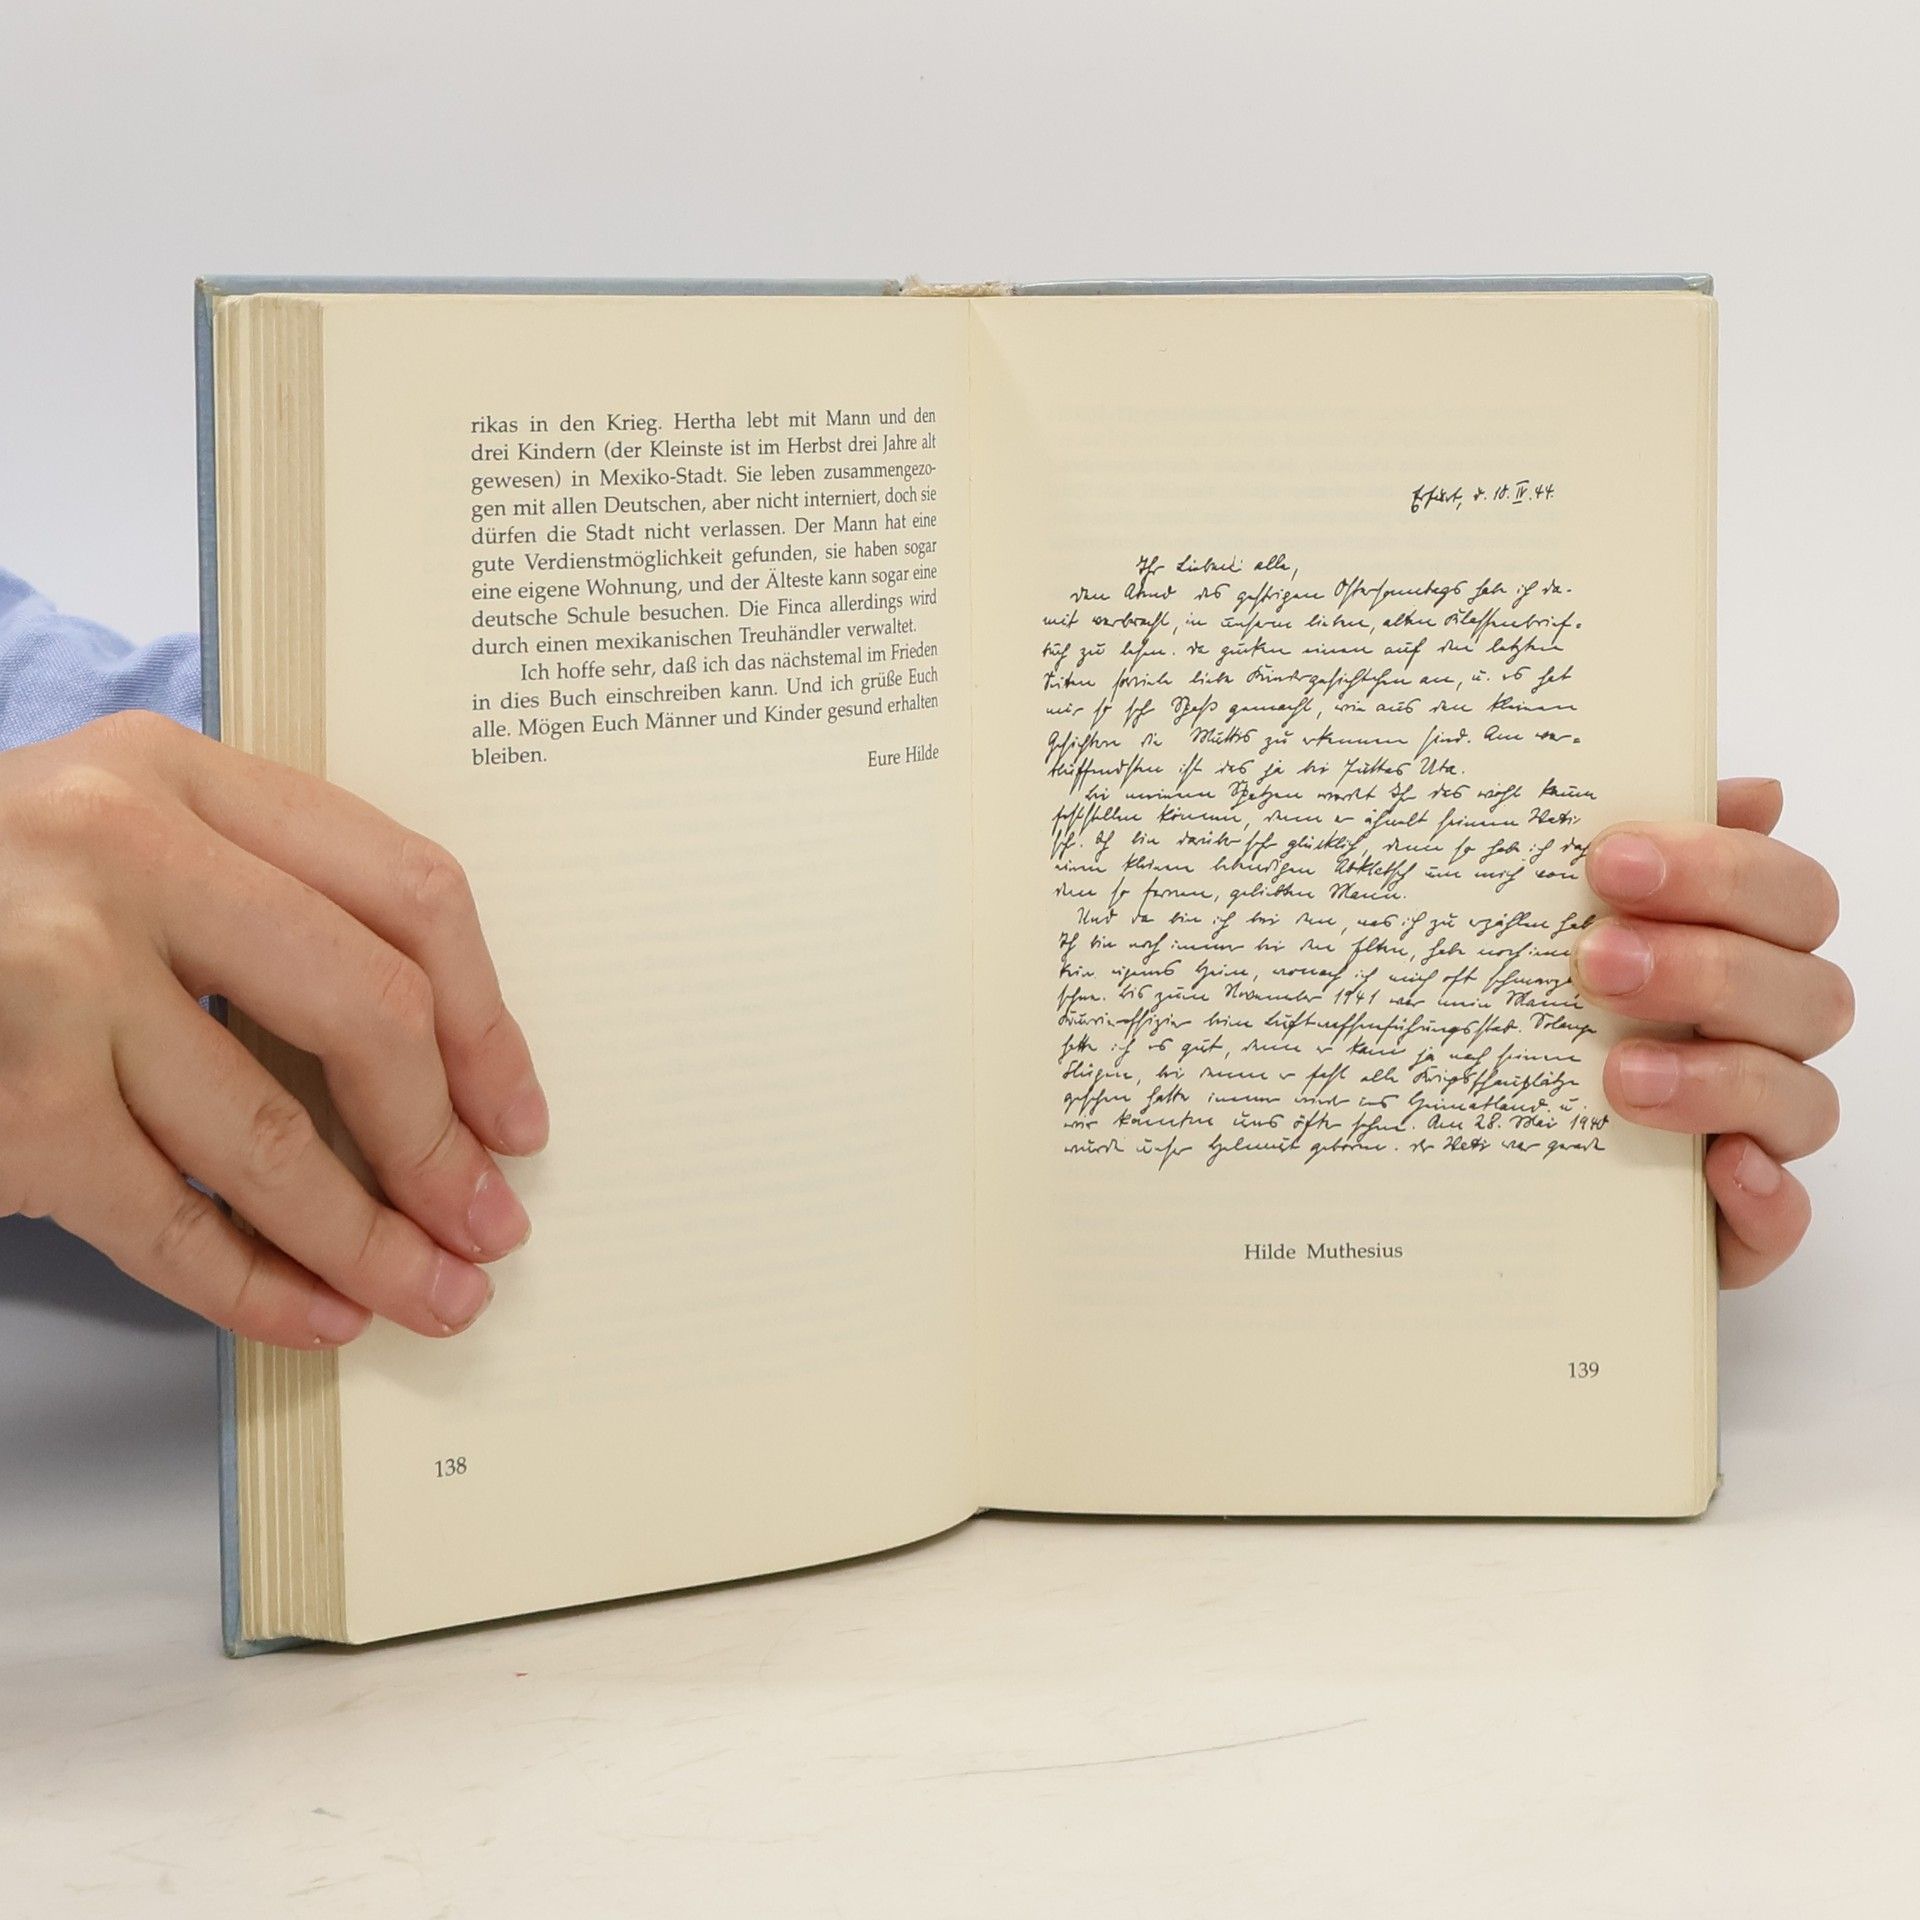 rikas in den Krieg. Hertha lebt mit Mann und den
drei Kindern (der Kleinste ist im Herbst drei Jahre alt
gewesen) in Mexiko-Stadt. Sie leben zusammengezo-
gen mit allen Deutschen, aber nicht interniert, doch sie
dürfen die Stadt nicht verlassen. Der Mann hat eine
gute Verdienstmöglichkeit gefunden, sie haben sogar
eine eigene Wohnung, und der Älteste kann sogar eine
deutsche Schule besuchen. Die Finca allerdings wird
durch einen mexikanischen Treuhändler verwaltet.
Ich hoffe sehr, daß ich das nächstemal im Frieden
in dies Buch einschreiben kann. Und ich grüße Euch
alle. Mögen Euch Männer und Kinder gesund erhalten
bleiben.
Eure Hilde
138
Erfurt, d. 10. IV. 44.
Ihr Lieben alle,
den Abend des gestrigen Ostersonntags hab ich da-
mit verbracht, in unserm lieben, alten Klassenbrief-
buch zu lesen. Da gucken einen auf den letzten
Seiten soviele liebe Kindergesichtchen an, u. es hat
mir so sehr Spaß gemacht, wie aus den kleinen
Gesichtern die Muttis zu erkennen sind. Am ver-
blüffendsten ist das ja bei Juttas Uta.
Bei meinem Spatzen werdet Ihr das wohl kaum
feststellen können, denn er ähnelt seinem Vati
sehr. Ich bin darüber sehr glücklich, denn so hab ich doch
einen kleinen lebendigen Abklatsch um mich von
dem so fernen, geliebten Mann.
Und da bin ich bei dem, was ich zu erzählen hab
Ich bin noch immer bei den Eltern, habe noch
kein eigenes Heim, wonach ich mich oft
sehne. Bis zum November 1941 war mein Mann
Kurieroffizier beim Luftwaffenführungsstab. Solange
hatte ich es gut, denn er kam ja nach seinen
Flügen, bei denen er fast alle Kriegsschauplätze
gesehen hatte immer wieder ins Heimatland u.
wir konnten uns öfter sehen. Am 28. Mai 1940
wurde unser Helmut geboren. Der Vati war gerade
Hilde Muthesius
139